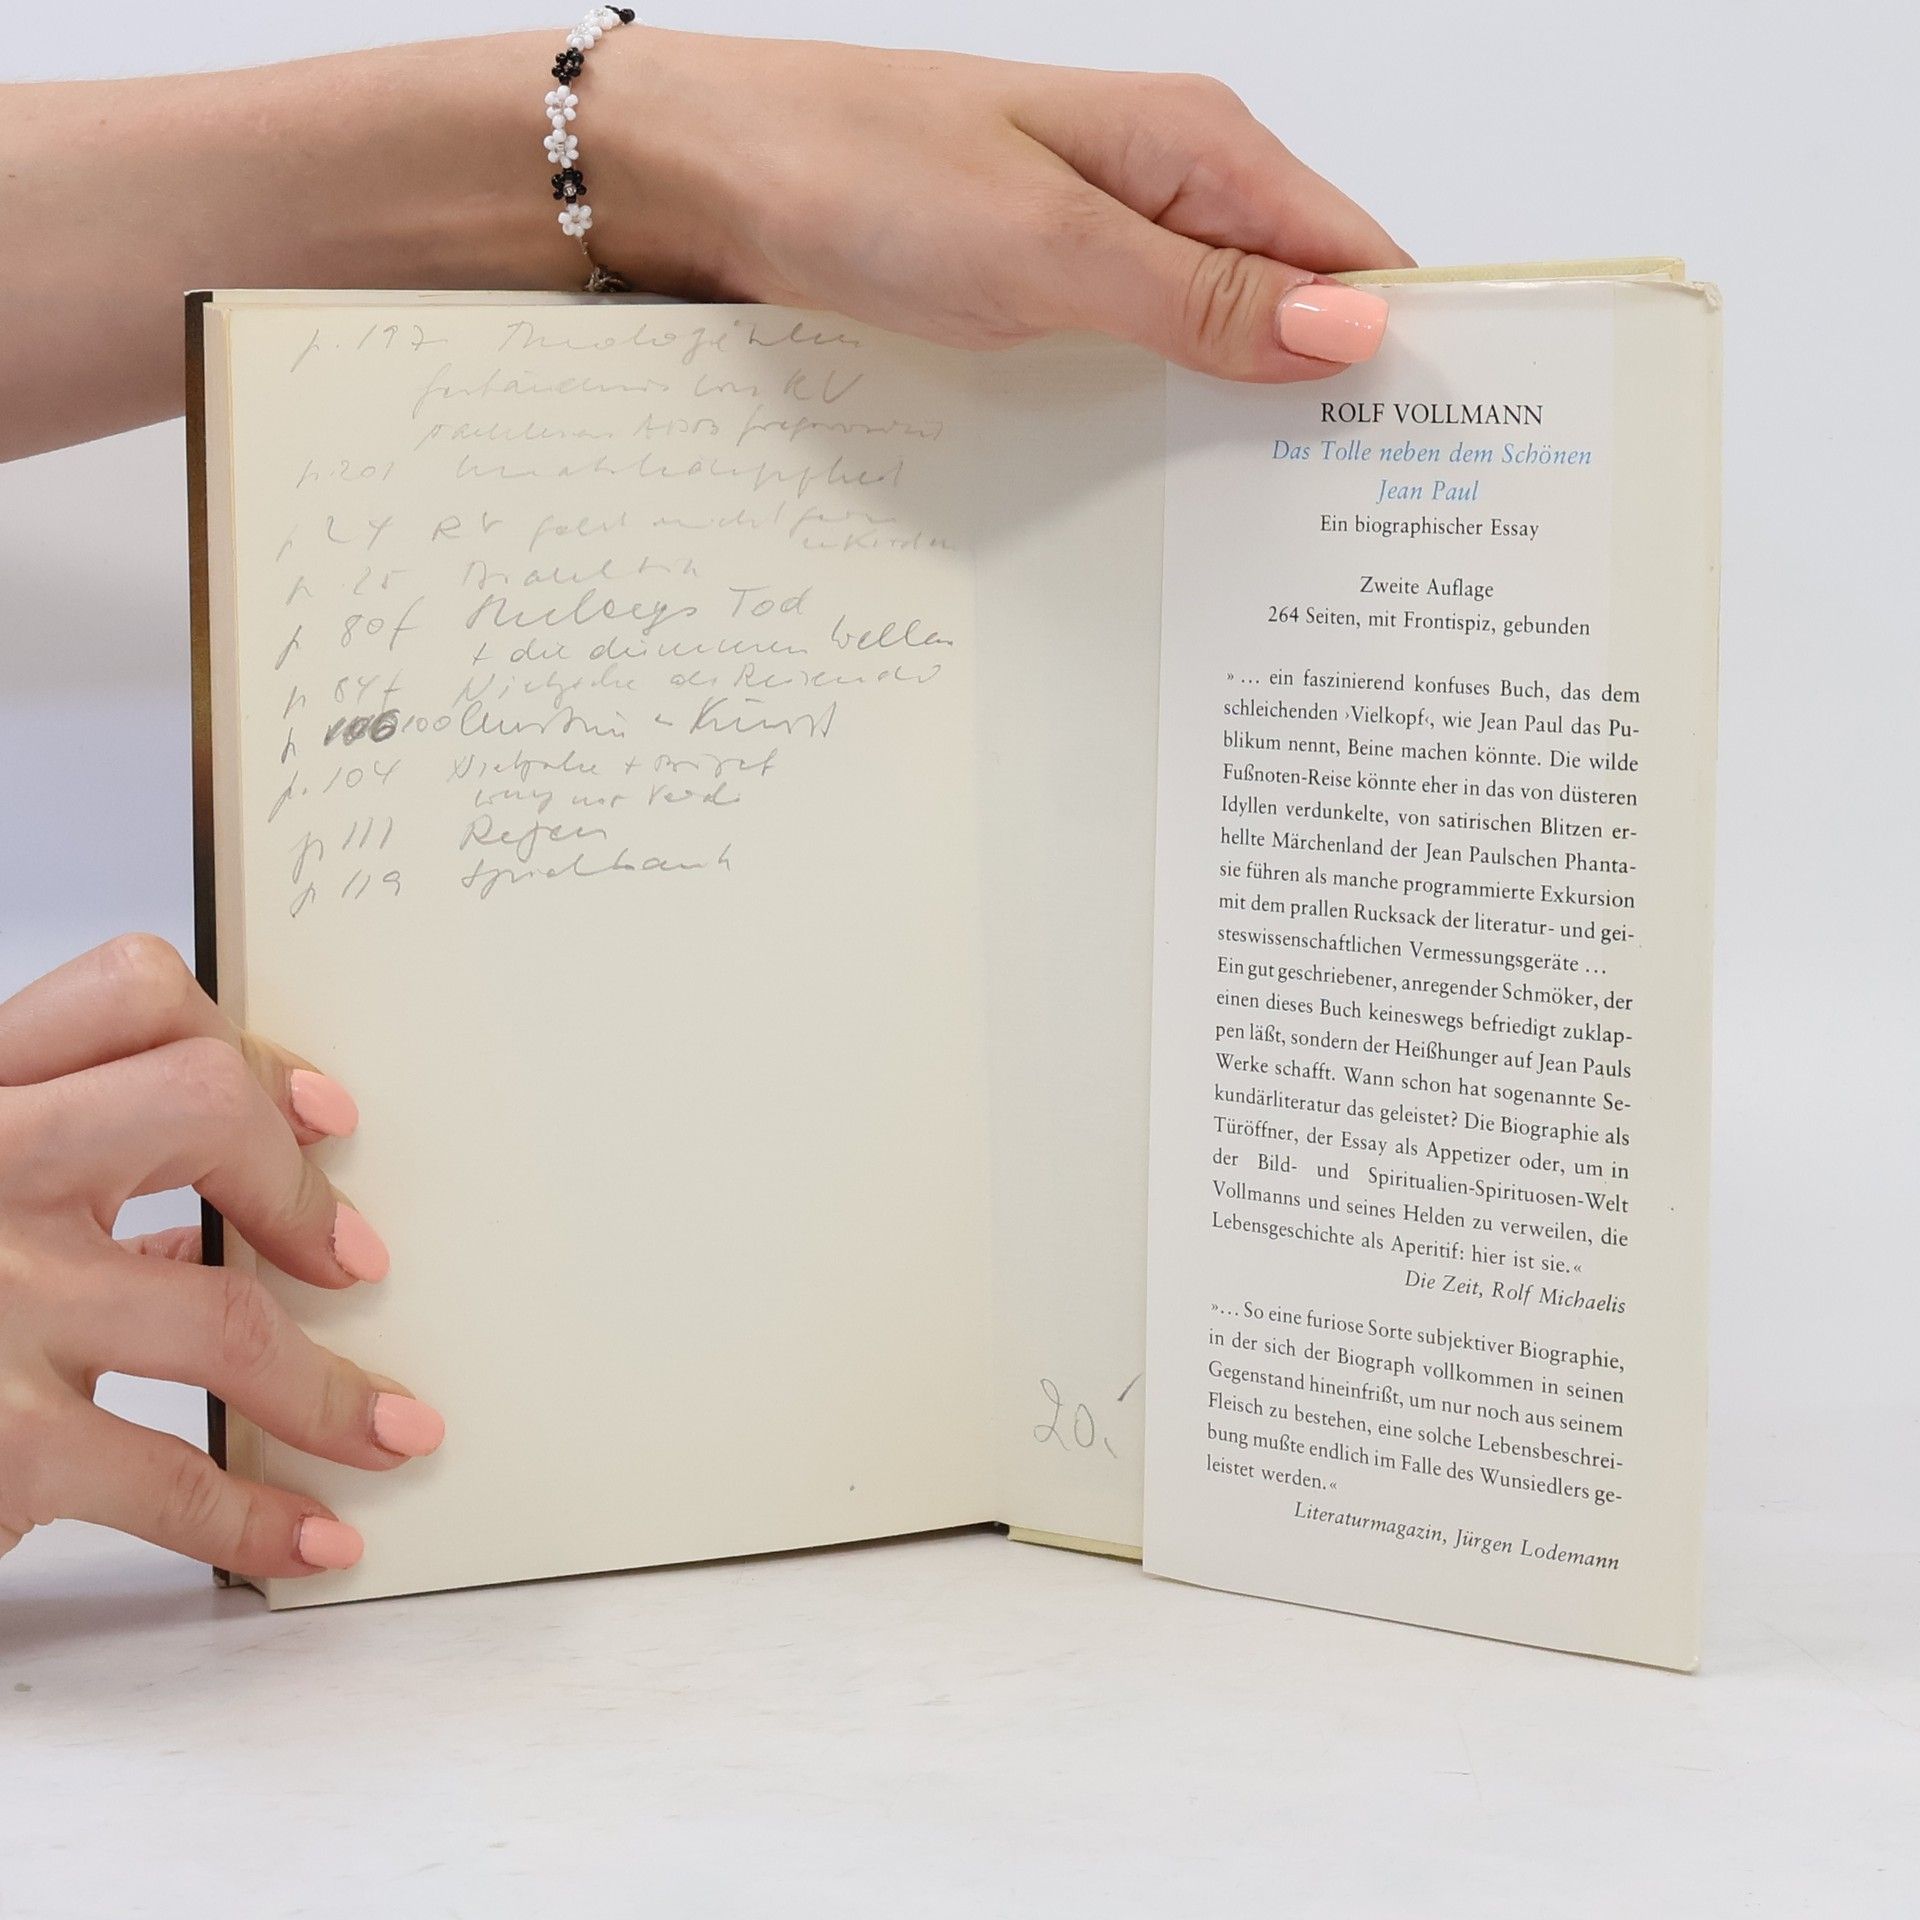 p. 197
p. 201
p 24 RV
p 25
p 80f Tod
+ die Wellen
p 84f Nietzsche als Reisender
p 100 Kunst
p. 104 Nietzsche +
p 111 Regen
p 119 Spielbank
20,
ROLF VOLLMANN
Das Tolle neben dem Schönen
Jean Paul
Ein biographischer Essay
Zweite Auflage
264 Seiten, mit Frontispiz, gebunden
»… ein faszinierend konfuses Buch, das dem
schleichenden ›Vielkopf‹, wie Jean Paul das Pu-
blikum nennt, Beine machen könnte. Die wilde
Fußnoten-Reise könnte eher in das von düsteren
Idyllen verdunkelte, von satirischen Blitzen er-
hellte Märchenland der Jean Paulschen Phanta-
sie führen als manche programmierte Exkursion
mit dem prallen Rucksack der literatur- und gei-
steswissenschaftlichen Vermessungsgeräte …
Ein gut geschriebener, anregender Schmöker, der
einen dieses Buch keineswegs befriedigt zuklap-
pen läßt, sondern der Heißhunger auf Jean Pauls
Werke schafft. Wann schon hat sogenannte Se-
kundärliteratur das geleistet? Die Biographie als
Türöffner, der Essay als Appetizer oder, um in
der Bild- und Spiritualien-Spirituosen-Welt
Vollmanns und seines Helden zu verweilen, die
Lebensgeschichte als Aperitif: hier ist sie.«
Die Zeit, Rolf Michaelis
»… So eine furiose Sorte subjektiver Biographie,
in der sich der Biograph vollkommen in seinen
Gegenstand hineinfrißt, um nur noch aus seinem
Fleisch zu bestehen, eine solche Lebensbeschrei-
bung mußte endlich im Falle des Wunsiedlers ge-
leistet werden.«
Literaturmagazin, Jürgen Lodemann